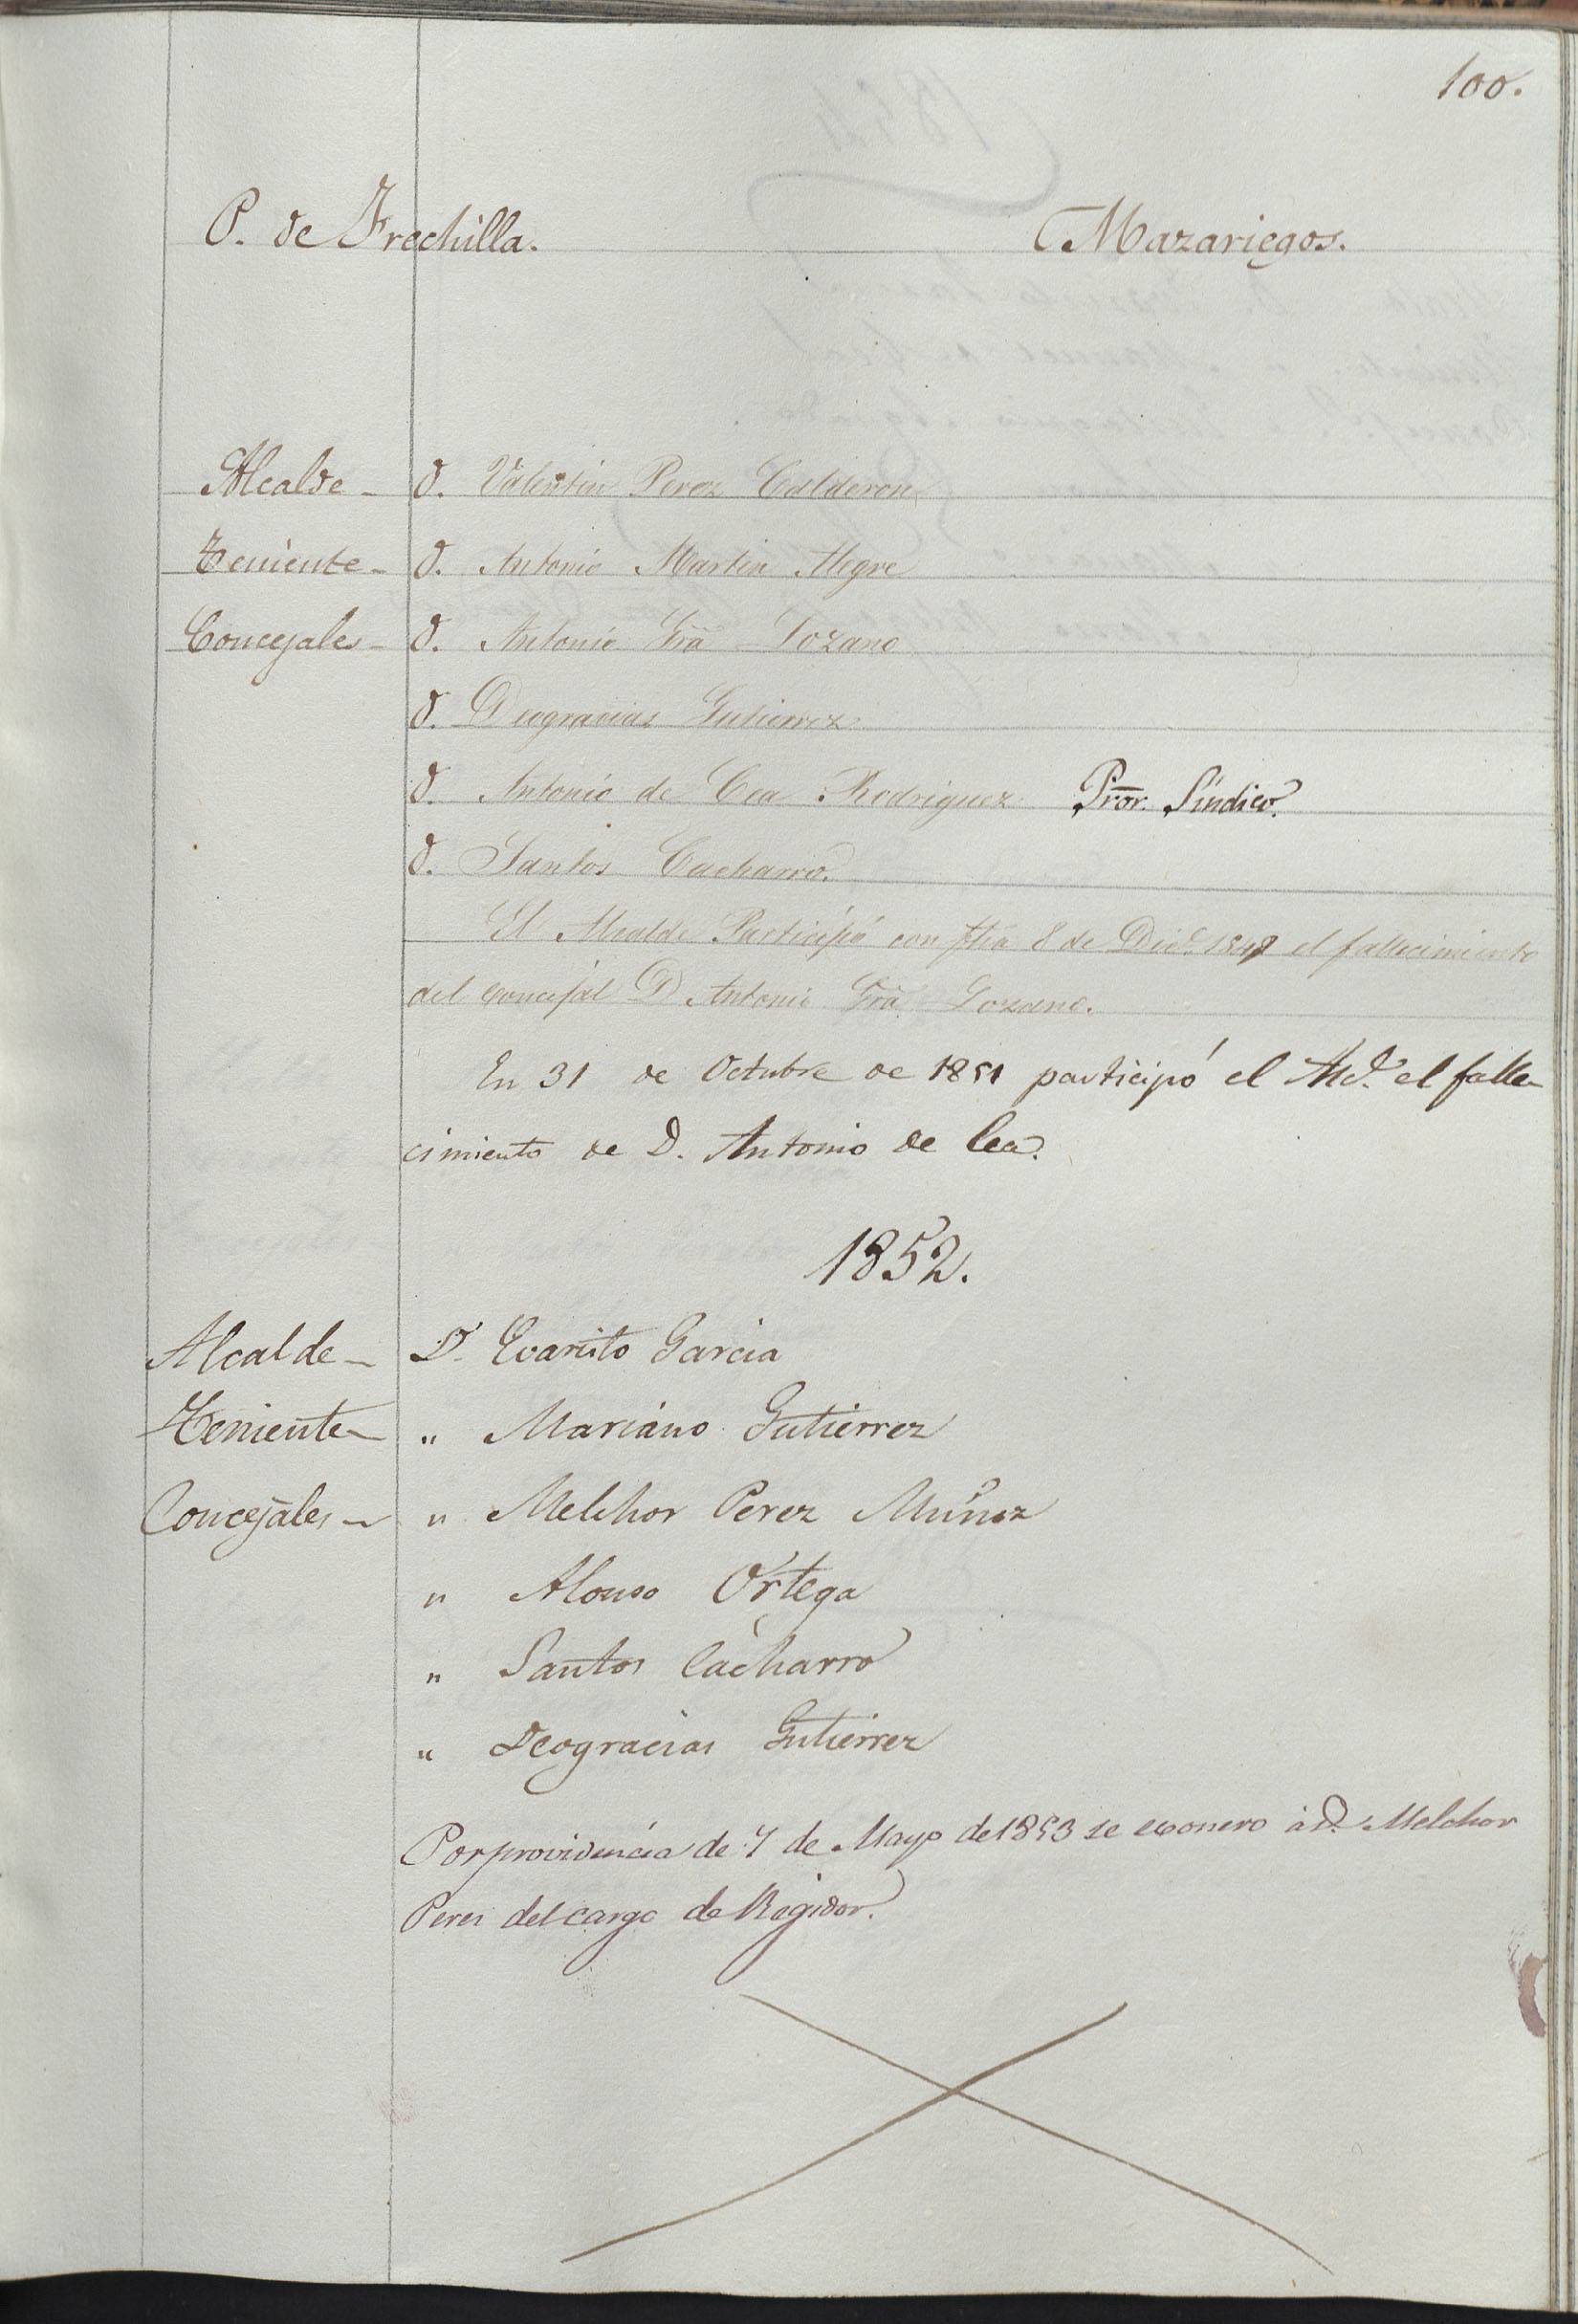 100.
P. de Frechilla. Mazariegos.
Alcalde - D. Valentin Perez Calderon
Teniente - D. Antonio Martin Alegre
Concejales - D. Antonio Gra Lozano
D. Deogracias Gutierrez
D. Antonio de Cea Rodriguez Pror. Síndico.
D. Santos Cacharro.
El Alcalde Participó con fha 8 de Dice 1848 el fallecimiento
del concejal D Antonio Gra Lozano.
En 31 de Octubre de 1851 participó el Ale. el falle-
cimiento de D. Antonio de Cea.
1852.
Alcalde - D. Evaristo Garcia
Teniente - " Mariano Gutierrez
Concejales - " Melchor Perez Muñoz
" Alonso Ortega
" Santos Cacharro
" Deogracias Gutierrez
Por providencia de 7 de Mayo de 1853 se exonero à D. Melchor
Peres del cargo de Regidor.